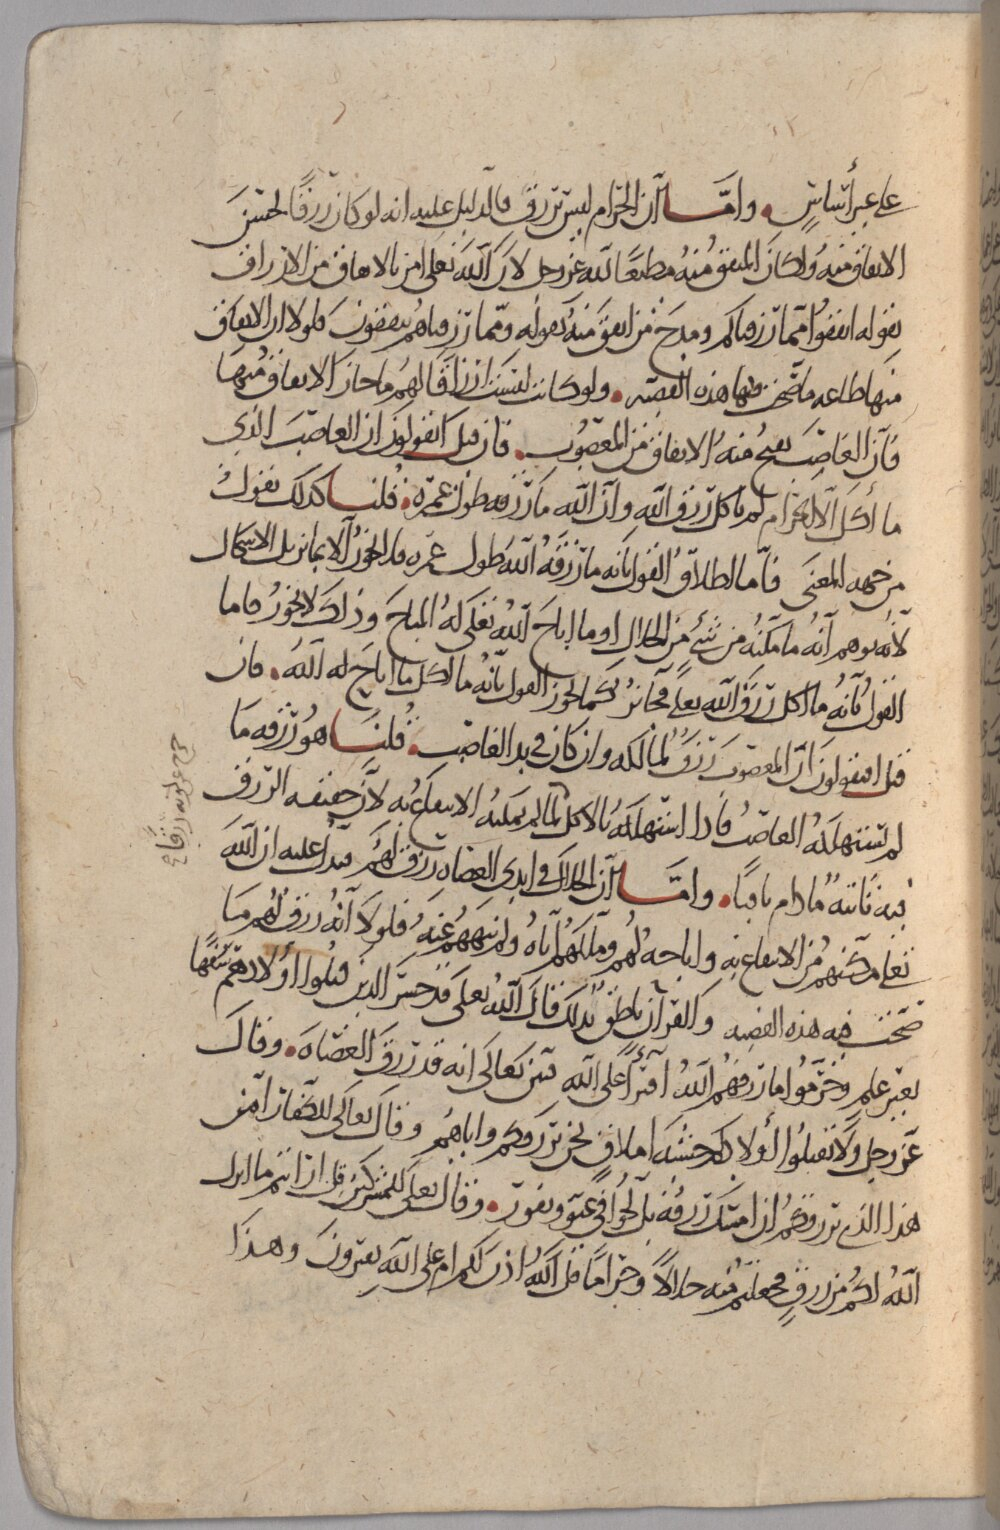 على غير أساسٍ. وامّا أن الحرام ليس برزق فالدليل عليه انه لو كان رزقًا لحسُنَ
الانفاق منه ولكان المنفق منه مطيعًا لله عز وجل لان الله تعلى امر بالانفاق من الارزاق
بقوله انفقوا مما رزقناكم ومدح من انفق منه بقوله ومما رزقناهم ينفقون فلولا ان الانفاق
منها طاعه ما صحّت فيها هذه القضيه. ولو كانت ليست ارزاقًا لهم ما جاز الانفاق منها
فان الغاصب يقبح منه الانفاق من المغصوب. فان قيل افتقولون ان الغاصب الذي
ما أكل الّا الحرام لم ياكل رزق الله وان الله ما رزقه طول عمره. قلنا كذلك نقول
من جهه المعنى فأما اطلاق القول بانه ما رزقه الله طول عمره فلا يجوز الا بما يزيل الاشكال
لأنه يوهم أنه ما مكّنه من شئ من الحلال او ما اباح الله تعلى له المباح وذلك لا يجوز فاما
القول بأنه ما اكل رزق الله تعلى فجائز كما يجوز القول بأنه ما اكل ما اباح له الله. فان
قيل افتقولون ان المغصوب رزق لمالكه وان كان في يد الغاصب. قلنا هو رزقه ما
لم يستهلكه الغاصب فاذا استهلكه بالاكل لم يمكنه الانتفاع به لأن حقيقه الرزق
فيه ثابته ما دام باقيًا. وامّا أن الحلال في ايدي العصاه رزق لهم فيدل عليه ان الله
تعلى مكّنهم من الانتفاع به واباحه لهم وملّكهم اياه ولم ينههم عنه فلولا أنه رزق لهم ما
صحّت فيه هذه القضيه والقرآن ناطق بذلك قال الله تعلى قد خسر الذين قتلوا أولادهم سفهًا
بغير علم وحرّموا ما رزقهم الله افترآءً على الله فبين تعالى انه قد رزق العصاه. وقال
عز وجل ولا تقتلوا أولادكم خشيه املاق نحن نرزقكم واياهم وقال تعالى للكفار امّن
هذا الذي يرزقكم ان امسك رزقه بل لجّوا في عتو ونفور. وقال تعلى للمشركين قل ارايتم ما انزل
الله لكم من رزقٍ فجعلتم منه حلالاً وحرامًا قل آلله اذن لكم ام على الله تفترون وهذا